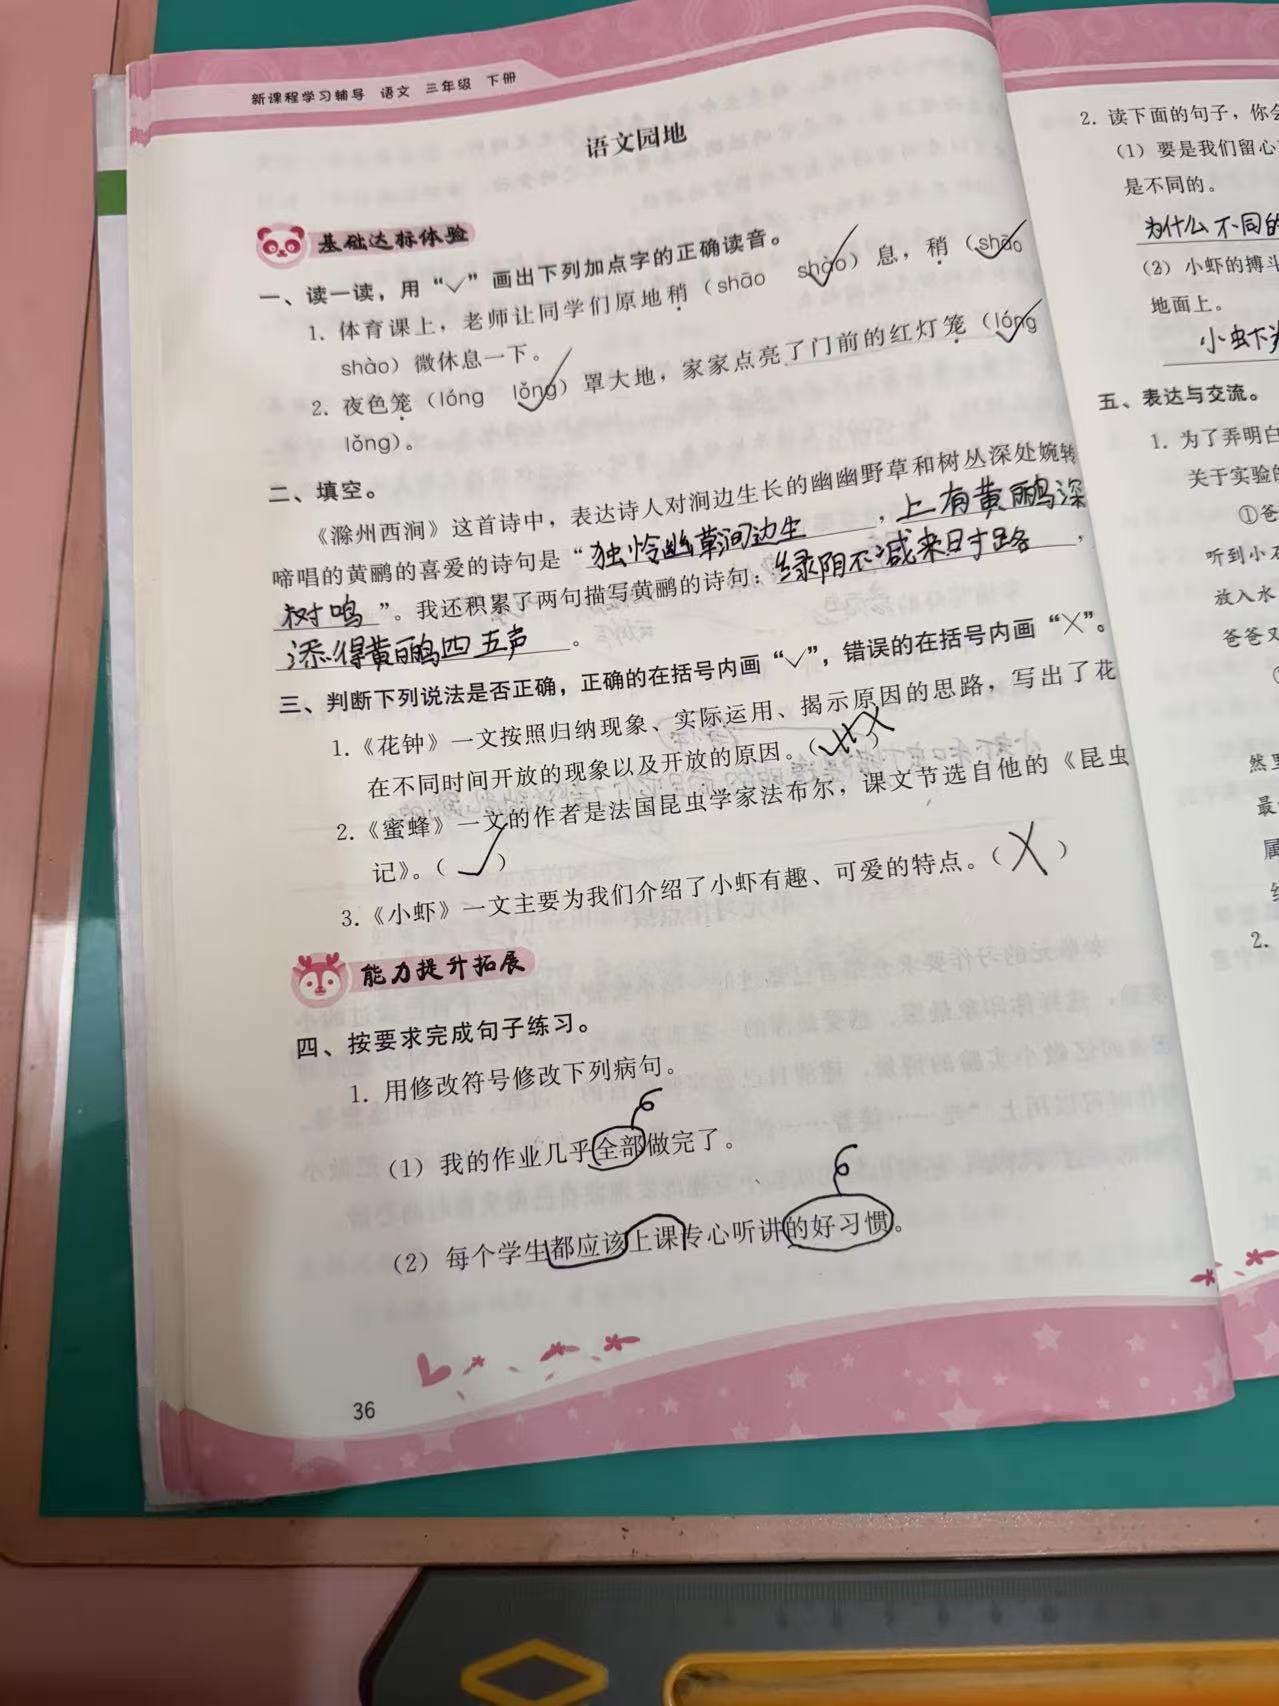 新课程学习辅导 语文 三年级 下册
语文园地
基础达标体验
一、读一读，用“✓”画出下列加点字的正确读音。
1. 体育课上，老师让同学们原地稍（shāo shào）息，稍（shāo
shào）微休息一下。
2. 夜色笼（lóng lǒng）罩大地，家家点亮了门前的红灯笼（lóng
lǒng）。
二、填空。
《滁州西涧》这首诗中，表达诗人对涧边生长的幽幽野草和树丛深处婉转
啼唱的黄鹂的喜爱的诗句是“独怜幽草涧边生，上有黄鹂深
树鸣”。我还积累了两句描写黄鹂的诗句：绿阴不减来时路，
添得黄鹂四五声。
三、判断下列说法是否正确，正确的在括号内画“✓”，错误的在括号内画“×”。
1.《花钟》一文按照归纳现象、实际运用、揭示原因的思路，写出了花
在不同时间开放的现象以及开放的原因。（×）
2.《蜜蜂》一文的作者是法国昆虫学家法布尔，课文节选自他的《昆虫
记》。（✓）
3.《小虾》一文主要为我们介绍了小虾有趣、可爱的特点。（×）
能力提升拓展
四、按要求完成句子练习。
1. 用修改符号修改下列病句。
（1）我的作业几乎全部做完了。
（2）每个学生都应该上课专心听讲的好习惯。
36
2. 读下面的句子，你会
（1）要是我们留心
是不同的。
为什么不同的
（2）小虾的搏斗
地面上。
小虾
五、表达与交流。
1. 为了弄明白
关于实验的
①爸
听到小石
放入水
爸爸又
然里
最
属
2.